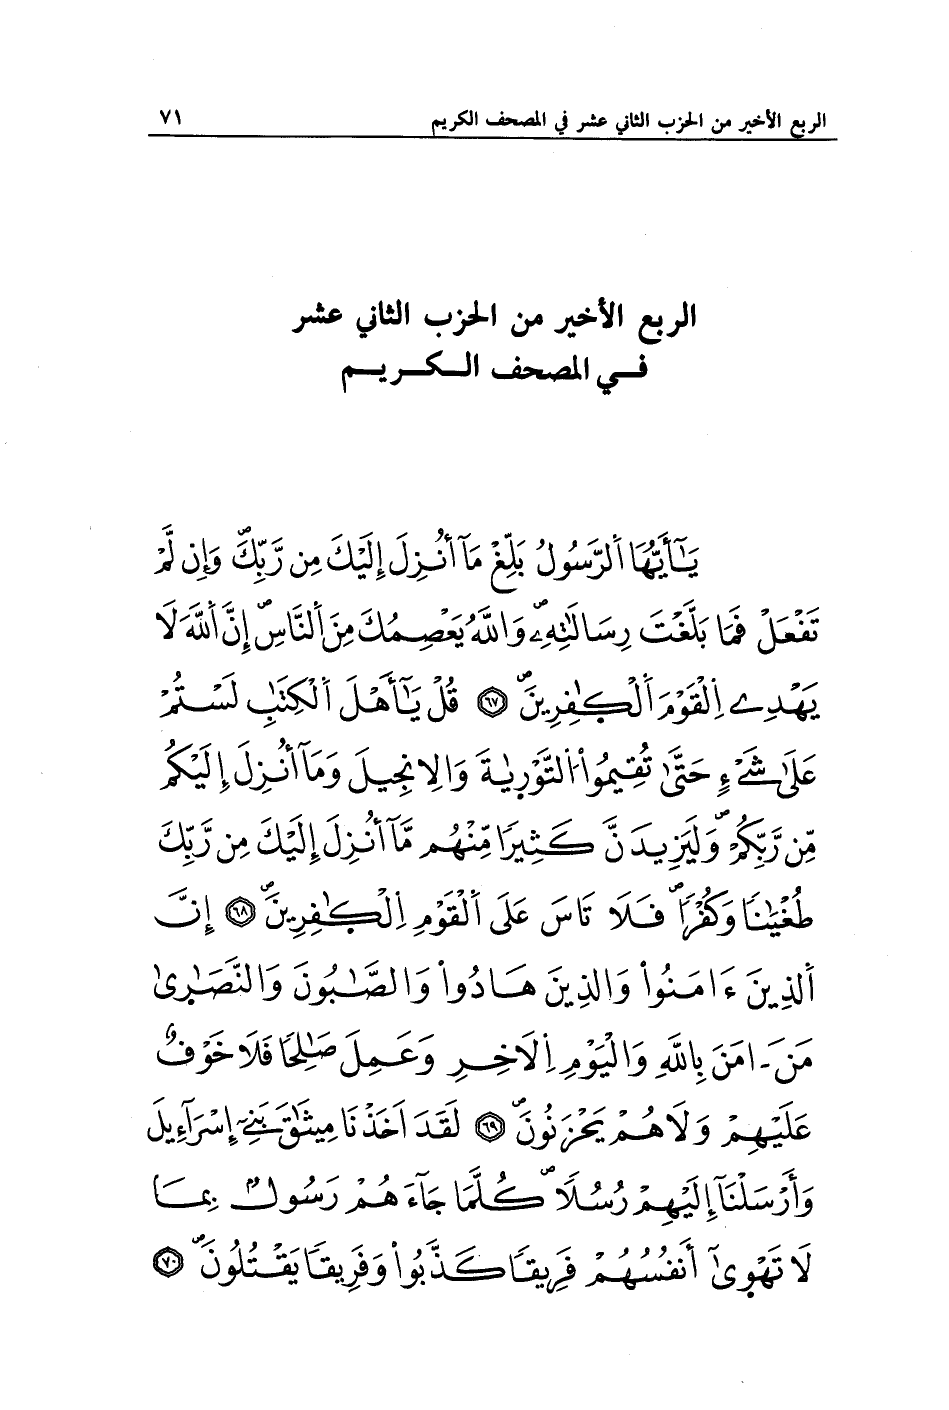 الربع الأخير من الحزب الثاني عشر في المصحف الكريم ٧١
الربع الأخير من الحزب الثاني عشر
في المصحف الكريم
يَٰٓأَيُّهَا اَ۬لرَّسُولُ بَلِّغْ مَآ أُنزِلَ إِلَيْكَ مِن رَّبِّكَۖ وَإِن لَّمْ
تَفْعَلْ فَمَا بَلَّغْتَ رِسَالَٰتِهِۦۖ وَاللَّهُ يَعْصِمُكَ مِنَ اَ۬لنَّاسِۖ إِنَّ اَ۬للَّهَ لَا
يَهْدِے اِ۬لْقَوْمَ اَ۬لْكَٰفِرِينَۖ ٦٧ قُلْ يَٰٓأَهْلَ اَ۬لْكِتَٰبِ لَسْتُمْ
عَلَىٰ شَےْءٍ حَتَّىٰ تُقِيمُواْ اُ۬لتَّوْر۪يٰةَ وَالِانجِيلَ وَمَآ أُنزِلَ إِلَيْكُم
مِّن رَّبِّكُمْۖ وَلَيَزِيدَنَّ كَثِيراٗ مِّنْهُم مَّآ أُنزِلَ إِلَيْكَ مِن رَّبِّكَ
طُغْيَٰناٗ وَكُفْراٗۖ فَلَا تَاسَ عَلَى اَ۬لْقَوْمِ اِ۬لْكَٰفِرِينَۖ ٦٨ إِنَّ
اَ۬لذِينَ ءَامَنُواْ وَالذِينَ هَادُواْ وَالصَّٰبُونَ وَالنَّصَٰر۪ىٰ
مَنَ ـ امَنَ بِاللَّهِ وَالْيَوْمِ اِ۬لَاخِرِ وَعَمِلَ صَٰلِحاٗ فَلَا خَوْفٌ
عَلَيْهِمْ وَلَا هُمْ يَحْزَنُونَۖ ٦٩ لَقَدَ اَخَذْنَا مِيثَٰقَ بَنِےٓ إِسْرَآءِيلَ
وَأَرْسَلْنَآ إِلَيْهِمْ رُسُلاٗۖ كُلَّمَا جَآءَهُمْ رَسُولُۢ بِمَا
لَا تَهْو۪ىٰٓ أَنفُسُهُمْ فَرِيقاٗ كَذَّبُواْ وَفَرِيقاٗ يَقْتُلُونَۖ ٧٠